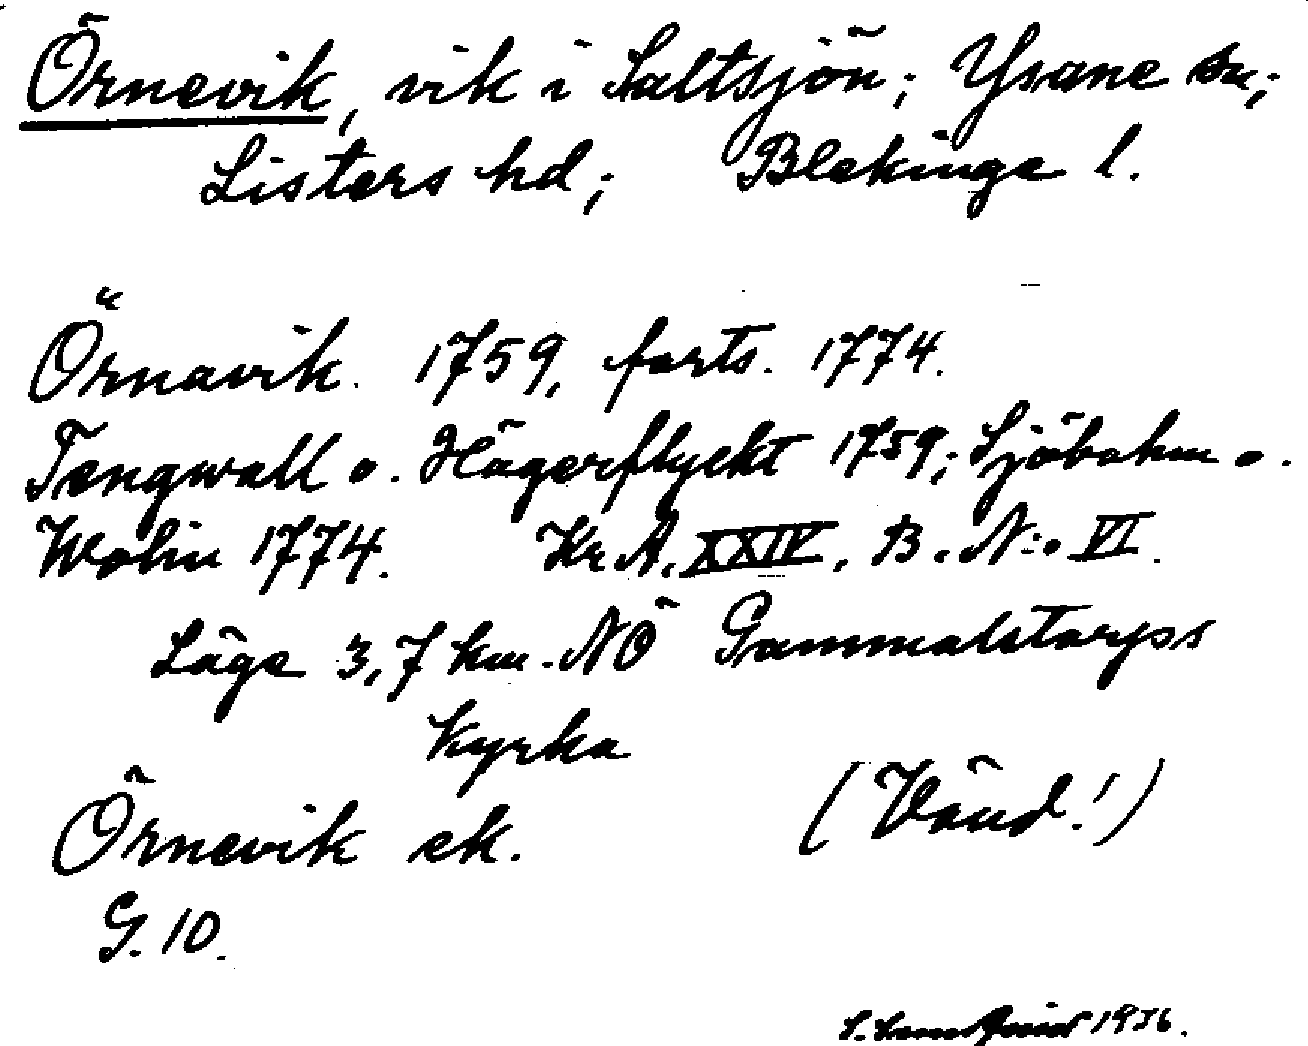 Örnevik, vik i Saltsjön; Ysane sn;
Listers hd; Blekinge l.
Örnavik. 1759, forts. 1774.
Tengwall o. Hägerflyckt 1759; Sjöbohm o.
Wolin 1774. Kr. A. XXIV. B. N:o VI.
Läge 3,7 km. NÖ Gammalstorps
kyrka
Örnevik ek. (Vänd!)
G. 10.
1936.